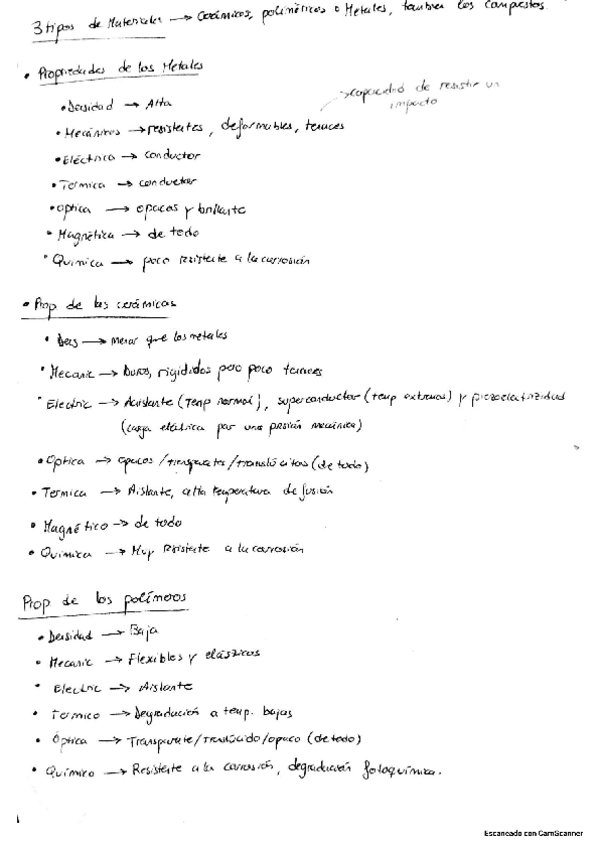 3 tipos de Materiales → Cerámicos, poliméricos o Metales, tambien los compestos.
• Propiedades de los Metales
• Densidad → Alta
→ capacidad de resistir un
impacto
• Mecánicas → resistentes, deformables, tenaces
• Eléctrica → conductor
• Termica → conductor
• Optica → opacos y brillante
• Magnética → de todo
• Quimica → poco resistente a la corrosión
• Prop de las cerámicas
• Dens → menor que los metales
• Mecanic → Duros, rigididos pero poco tenaces
• Electric → Aislante (Temp normal), superconductor (temp extremas) y piezoelectrizidad
(carga eléctrica por una presión mecánica)
• Optica → opacos/transparentes/translúcidos (de todo)
• Termica → Aislante, alta temperatura de fusión
• Magnético → de todo
• Quimica → Muy resistente a la corrosión
Prop de los polímeros
• Densidad → Baja
• Mecanic → Flexibles y elásticos
• Electric → Aislante
• Termico → Degradación a temp. bajas
• Óptica → Transparente/Translúcido/opaco (de todo)
• Químico → Resistente a la corrosión, degradación fotoquímica.
Escaneado con CamScanner